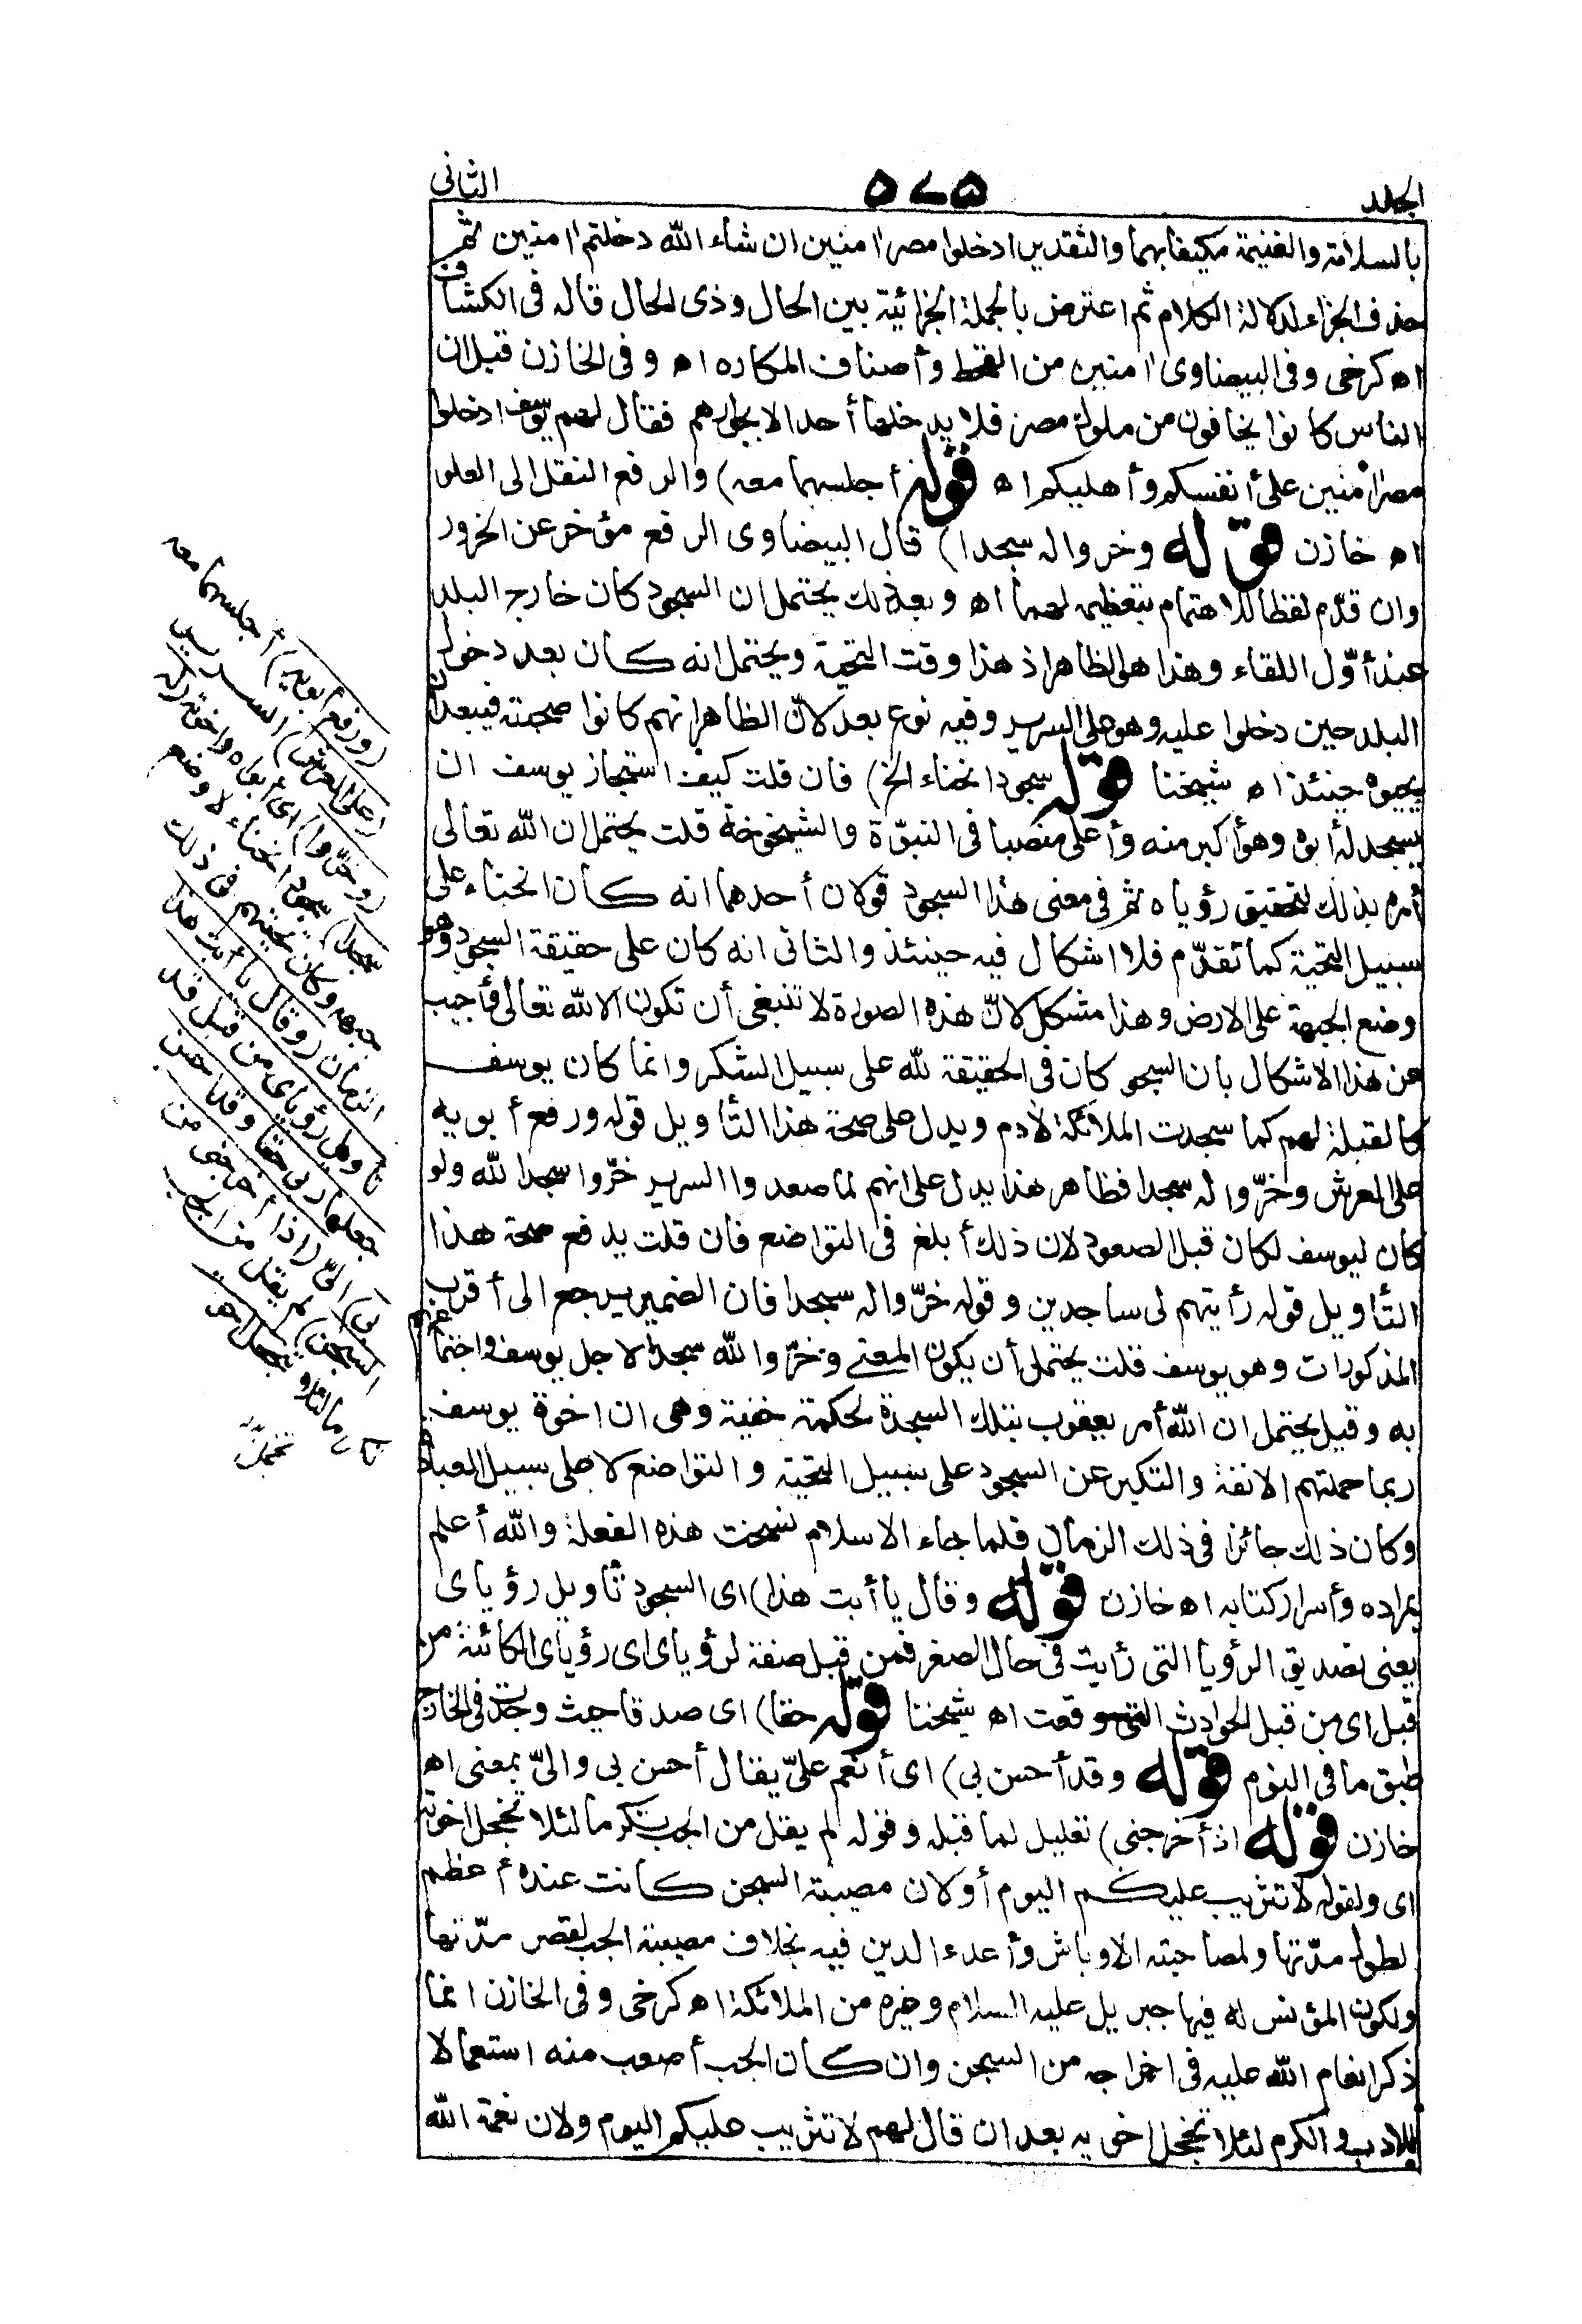 الجلد
٥٧٥
الثانى
بالسلامة والغنيمة مكيفا بهما والتقدير ادخلوا مصر اٰمنين ان شاء الله دخلتم اٰمنين ثم
حذف الجزاء لدلالة الكلام ثم اعترض بالجملة الجزائية بين الحال وذى الحال قاله فى الكشاف
اه كرخى وفى البيضاوى اٰمنين من القحط وأصناف المكاره اه وفى الخازن قيل ان
الناس كانوا يخافون من ملوك مصر فلا يدخلها أحد الا بجوارهم فقال لهم يوسف ادخلوا
مصر اٰمنين على أنفسكم وأهليكم اه قوله أجلسهما معه) والرفع النقل الى العلو
اه خازن قوله وخروا له سجدا) قال البيضاوى الرفع مؤخر عن الخرور
وان قدّم لفظا للاهتمام بتعظيمه لهما اه وبعد ذلك يحتمل ان السجود كان خارج البلد
عند أوّل اللقاء وهذا هو الظاهر اذ هذا وقت التحية ويحتمل انه كان بعد دخول
البلد حين دخلوا عليه وهو على السرير وفيه نوع بعد لانّ الظاهر انهم كانوا صحبته فيبعد ان
يحيوه حينئذ اه شيخنا قوله سجود انحناء الخ) فان قلت كيف استجاز يوسف ان
يسجد له أبوه وهو أكبر منه وأعلى منصبا فى النبوّة والشيخوخة قلت يحتمل ان الله تعالى
أمره بذلك لتحقيق رؤياه ثم فى معنى هذا السجود قولان أحدهما انه كان انحناء على
سبيل التحية كما تقدّم فلا اشكال فيه حينئذ والثانى انه كان على حقيقة السجود وهو
وضع الجبهة على الارض وهذا مشكل لانّ هذه الصورة لا تنبغى أن تكون الا لله تعالى فأجيب
عن هذا الاشكال بان السجود كان فى الحقيقة لله على سبيل الشكر وانما كان يوسف
كالقبلة لهم كما سجدت الملائكة لاٰدم ويدل على صحة هذا التأويل قوله ورفع أبويه
على العرش وخرّوا له سجدا فظاهر هذا يدل على انهم لما صعدوا السرير خرّوا سجدا لله ولو
كان ليوسف لكان قبل الصعود لان ذلك أبلغ فى التواضع فان قلت يدفع صحة هذا
التأويل قوله رأيتهم لى ساجدين وقوله خرّوا له سجدا فان الضمير يرجع الى أقرب
المذكورات وهو يوسف قلت يحتمل أن يكون المعنى وخرّوا لله سجدا لاجل يوسف واجتماعهم
به وقيل يحتمل ان الله أمر يعقوب بتلك السجدة لحكمة خفية وهى ان اخوة يوسف
ربما حملتهم الانفة والتكبر عن السجود على سبيل التحية والتواضع لا على سبيل العبادة
وكان ذلك جائزا فى ذلك الزمان فلما جاء الاسلام نسخت هذه الفعلة والله أعلم
بمراده وأسرار كتابه اه خازن قوله وقال يا أبت هذا) اى السجود تأويل رؤياى
يعنى تصديق الرؤيا التى رأيت فى حال الصغر فمن قبل صفة لرؤياى اى رؤياى الكائنة من
قبل اى من قبل الحوادث التى وقعت اه شيخنا قوله حقا) اى صدقا حيث وجدت فى الخارج
طبق ما فى النوم قوله وقد أحسن بى) اى أنعم علىّ يقال أحسن بى والىّ بمعنى اه
خازن قوله اذ أخرجنى) تعليل لما قبله وقوله لم يقل من الجب تكرما لئلا تخجل اخوته
اى ولقوله لا تثريب عليكم اليوم أو لان مصيبة السجن كانت عنده أعظم
لطول مدّتها ولمصاحبته الاوباش وأعداء الدين فيه بخلاف مصيبة الجب لقصر مدّتها
ولكون المؤنس له فيها جبريل عليه السلام وغيره من الملائكة اه كرخى وفى الخازن انما
ذكر انعام الله عليه فى اخراجه من السجن وان كان الجب أصعب منه استعمالا
للادب والكرم لئلا تخجل اخوته بعد ان قال لهم لا تثريب عليكم اليوم ولان نعمة الله
(ورفع أبويه) أجلسهما معه
(على العرش) السرير
(وخرّوا) اى أبواه واخوته (له
سجدا) سجود انحناء لا وضع
جبهة وكان تحيتهم فى ذلك
الزمان (وقال يا أبت هذا
تأويل رؤياى من قبل قد
جعلها ربى حقا وقد أحسن
بى) الىّ (اذ أخرجنى من
السجن) لم يقل من الجب
تكرما لئلا تخجل اخوته